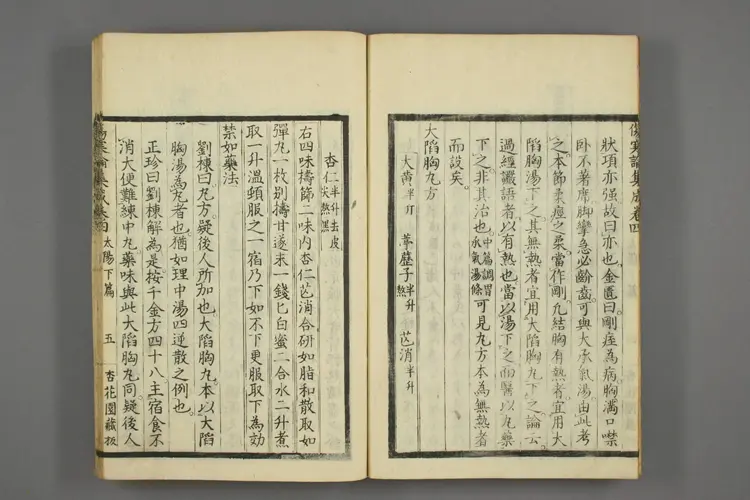 傷寒論集成卷四
狀項亦强故曰亦也金匱曰剛痓為病胸滿口噤
卧不著席脚攣急必齘齒可與大承氣湯由此考
之本節柔痙之柔當作剛凡結胸有熱者宜用大
陷胸湯下之其無熱者宜用大陷胸丸下之論云
過經讝語者以有熱也當以湯下之而醫以丸藥
下之非其治也中篇調胃承氣湯條可見丸方本為無熱者
而設矣
大陷胸丸方
大黃半斤 葶藶子半升熬 芒消半升
杏仁半升去皮尖熬黑
右四味擣篩二味內杏仁芒消合研如脂和散取如
彈丸一枚別擣甘遂末一錢匕白蜜二合水二升煮
取一升溫頓服之一宿乃下如不下更服取下為効
禁如藥法
劉棟曰丸方疑後人所加也大陷胸丸本以大陷
胸湯為丸者也猶如理中湯四逆散之例也
正珍曰劉棟解為是按千金方四十八主宿食不
消大便難練中丸藥味與此大陷胸丸同疑後人
傷寒論集成卷四 太陽下篇 五 杏花園藏板